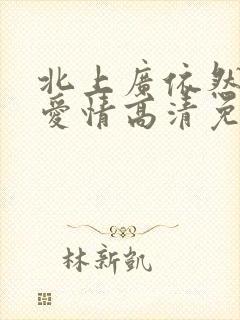 北上廣依然
愛情高清免
林新凱